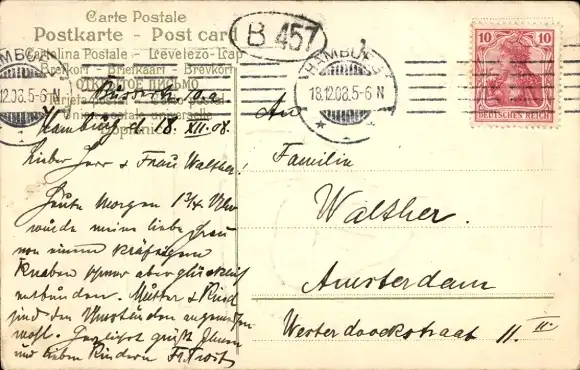 Carte Postale
Postkarte - Post card
Cartolina Postale - Levelező-Lap
Brefkort - Briefkaart - Brevkort
ОТКРЫТОЕ ПИСЬМО
Union postale universelle
B 457
HAMBURG
18.12.08.5-6 N
12.08.5-6 N
10
10
DEUTSCHES REICH
Hamburg d. 18. XII. 08.
Lieber Herr & Frau Walther!
Heute Morgen 1 3/4 Uhr
wurde meine liebe Frau
von einem kräftigen
Knaben schwer aber glücklich
entbunden. Mutter & Kind
sind den Umständen angemessen
wohl. Herzlichst grüßt Ihnen
und lieben Kindern Fr. Trost
An
Familie
Walther.
Amsterdam
Westerdokstraat 11. II.